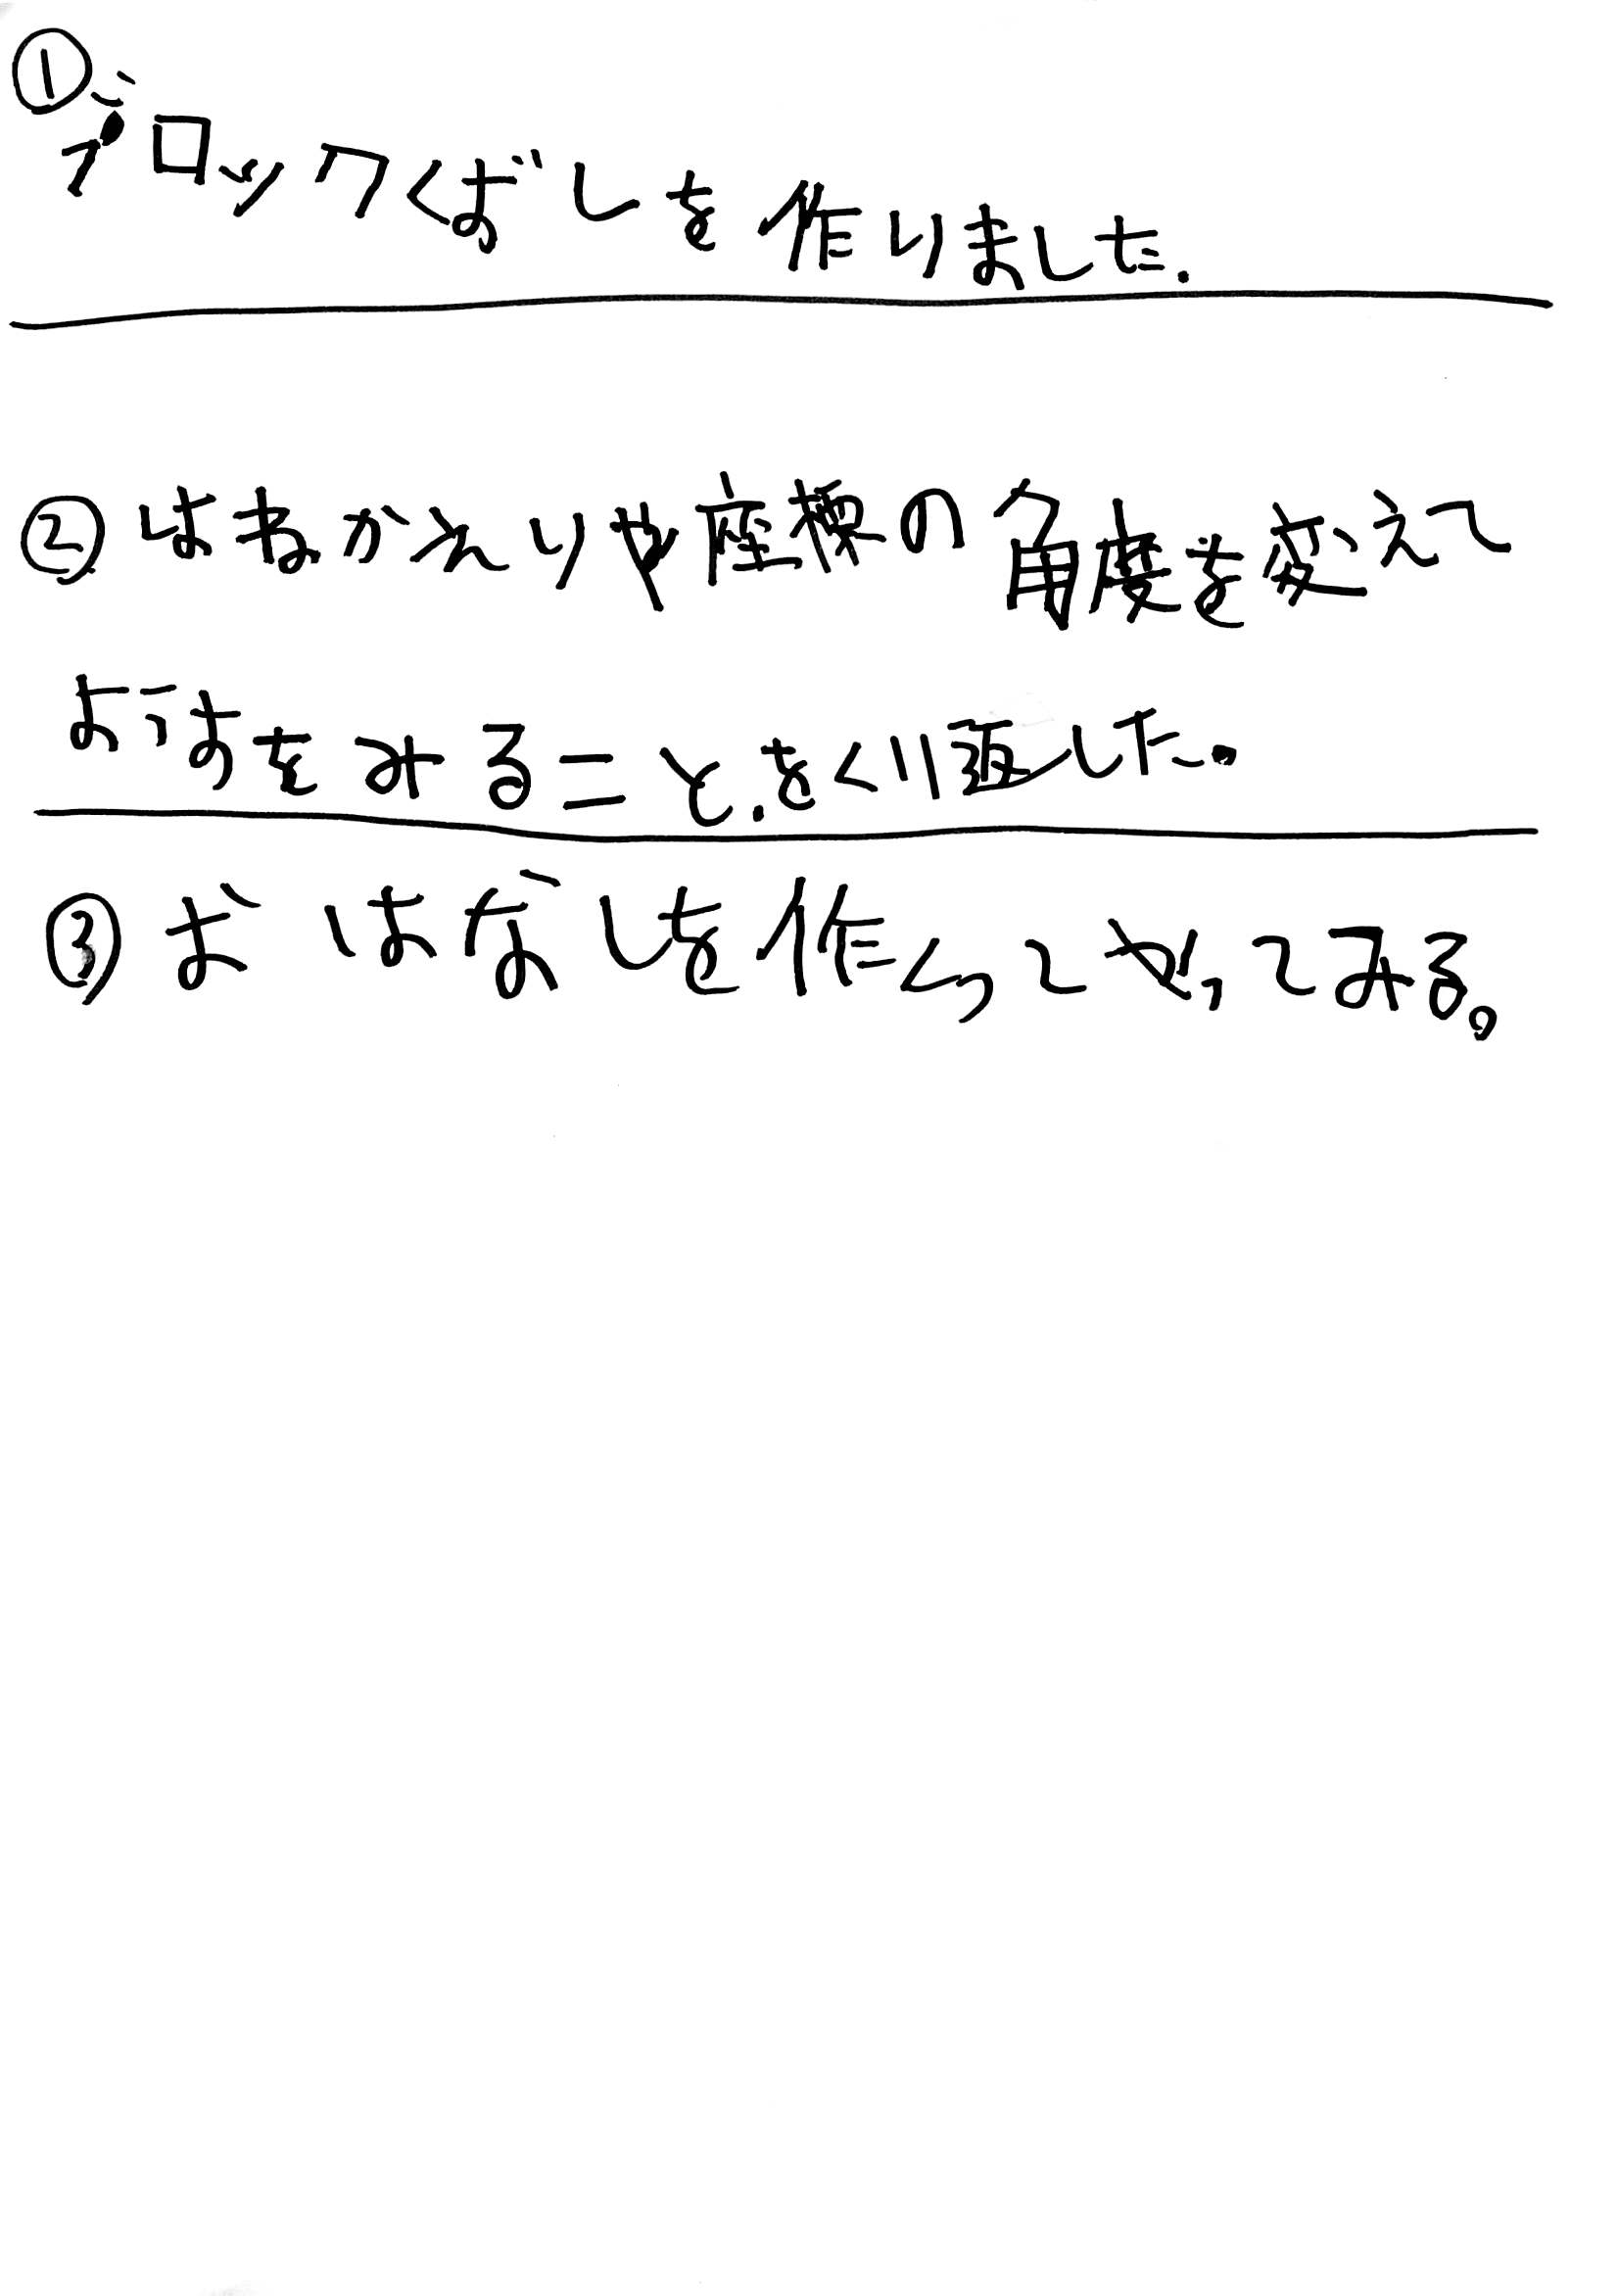 ①ブロックくずしを作りました.
②はねかえりや座標の角度を変えて
ようすをみることをくり返した。
③おはなしを作くってやってみる。